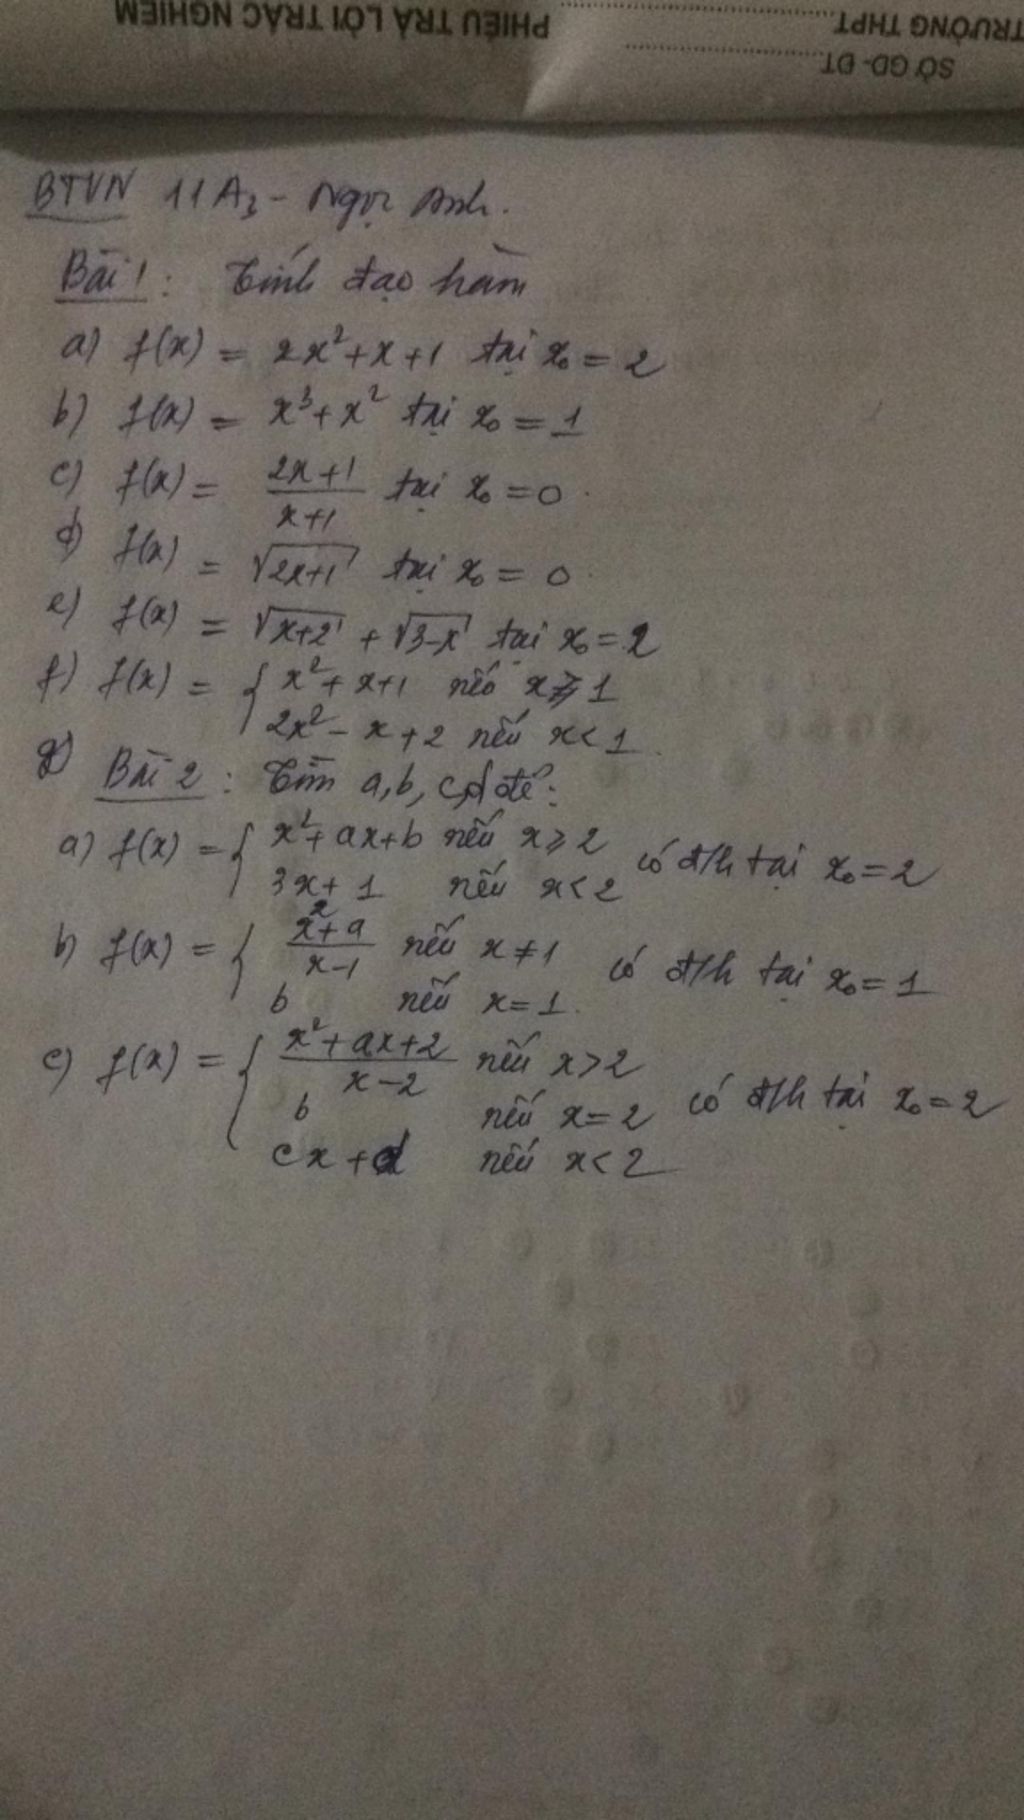 PHIẾU TRẢ LỜI TRẮC NGHIỆM
TRƯỜNG THPT
SỞ GD- ĐT
BTVN 11A3 - Ngọc Anh.
Bài 1: Tính đạo hàm
a) f(x) = 2x² + x + 1 tại x₀ = 2
b) f(x) = x³ + x² tại x₀ = 1
c) f(x) = (2x+1)/(x+1) tại x₀ = 0
d) f(x) = √(2x+1) tại x₀ = 0
e) f(x) = √(x+2) + √(3-x) tại x₀ = 2
f) f(x) = { x² + x + 1 nếu x ⩾ 1
2x² - x + 2 nếu x < 1
g) Bài 2: Tìm a, b, c, d để:
a) f(x) = { x² + ax + b nếu x ⩾ 2
3x + 1 nếu x < 2 có đ/h tại x₀ = 2
b) f(x) = { (x² + a)/(x-1) nếu x ≠ 1
b nếu x = 1 có đ/h tại x₀ = 1
c) f(x) = { (x² + ax + 2)/(x-2) nếu x > 2
b nếu x = 2 có đ/h tại x₀ = 2
cx + d nếu x < 2